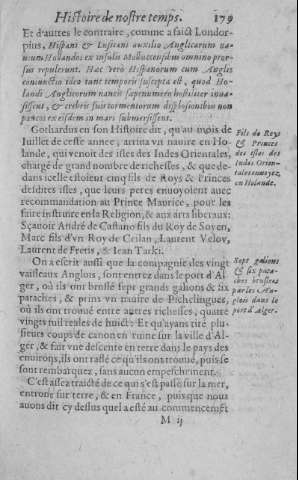 Histoire de nostre temps. 179
Et d'autres le contraire, comme a faict Londor-
pius, Hispani & Lusitani auxilio Anglicarum na-
uium Hollandos ex insulis Molluccensibus omnino pror-
sus repulerunt. Hac verò Hispanorum cum Anglis
coniunctio ideo tant temporis suscepta est, quod Ho-
landi Anglicorum naues sapenumero hostiliter inua-
sissent, & crebris suis tormentorum displosionibus non
paucas ex eisdem in mari submersissent.
Gothardus en son Histoire dit, qu'au mois de
Juillet de ceste annee, arriua vn nauire en Ho-
lande, qui venoit des isles des Indes Orientales,
chargé de grand nombre de richesses, & que de-
dans icelle estoient cinq fils de Roys & Princes
desdites isles, que leurs peres enuoyoient auec
recommandation au Prince Maurice, pour les
faire instruire en la Religion, & aux arts liberaux:
Sçauoir André de Castano fils du Roy de Soyen,
Marc fils d'vn Roy de Ceilan, Laurent Velov,
Laurent de Fretis, & Iean Tuski.
Fils de Roys
& Princes
des isles des
Indes Orien-
tales enuoyez
en Holande.
On a escrit aussi que la compagnie des vingt
vaisseaux Anglois, sont entrez dans le port d'Al-
ger, où ils ont bruslé sept grands galions & six
pataches, & prins vn nauire de Pichelingues,
où ils ont trouué entre autres richesses, quatre
vingts huit reales de huict: Et qu'ayans tiré plu-
sieurs coups de canon en ruine sur la ville d'Al-
ger, & fait vne descente en terre dans le pays des
enuirons, ils ont raflé ce qu'ils ont trouué, puis se
sont rembarquez, sans aucun empeschement.
Sept galions
& six pata-
ches bruslees
par les An-
glois dans le
port d'Alger.
C'est assez traicté de ce qui s'est passé sur la mer,
entrons sur terre, & en France, puis que nous
auons dit cy dessus quel a esté au commencemẽt
M ij